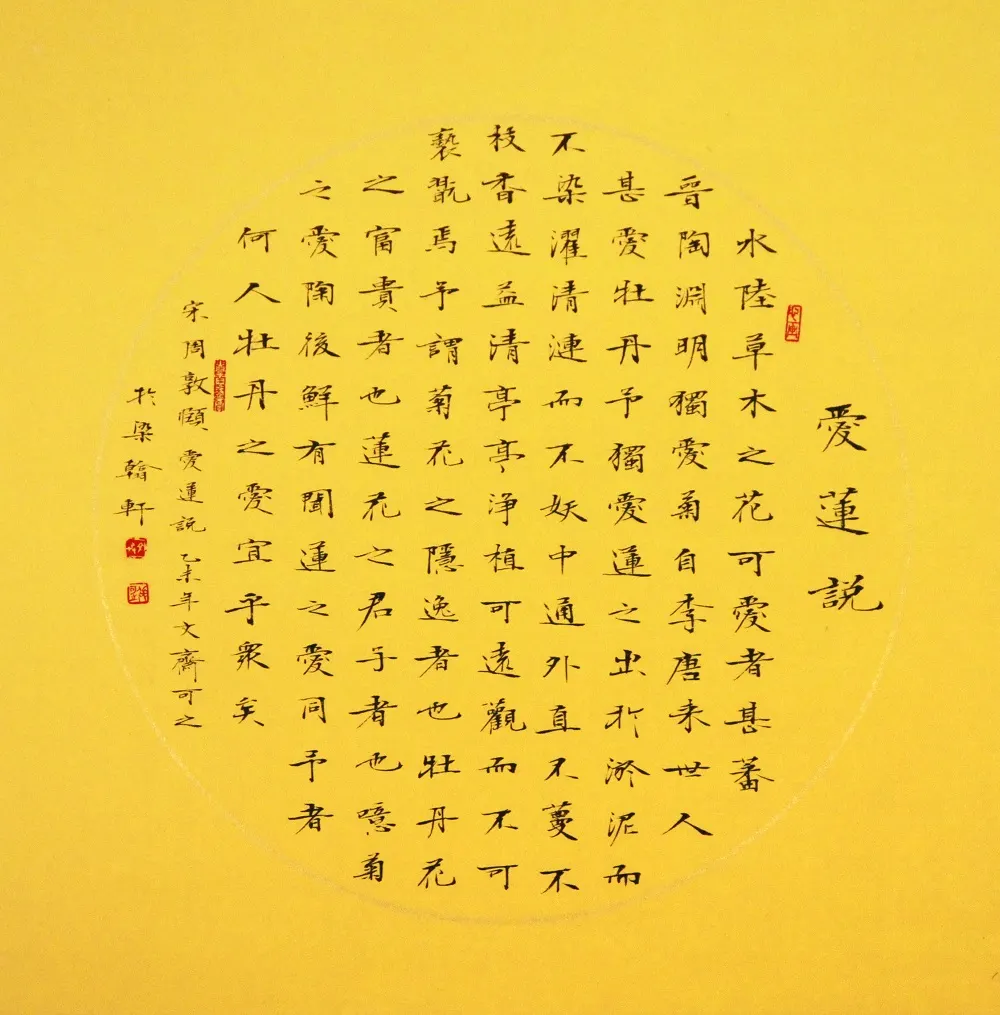 愛蓮説
水陸草木之花可愛者甚蕃
晉陶淵明獨愛菊自李唐来世人
甚愛牡丹予獨愛蓮之出於淤泥而
不染濯清漣而不妖中通外直不蔓不
枝香遠益清亭亭浄植可遠觀而不可
褻翫焉予謂菊花之隱逸者也牡丹花
之富貴者也蓮花之君子者也噫菊
之愛陶後鮮有聞蓮之愛同予者
何人牡丹之愛宜乎衆矣
宋周敦頤愛蓮説乙未年文齋可之
於染翰軒